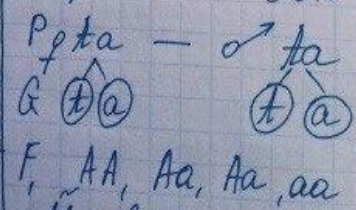 P ♀ Aa — ♂ Aa
G A a A a
F₁ AA, Aa, Aa, aa